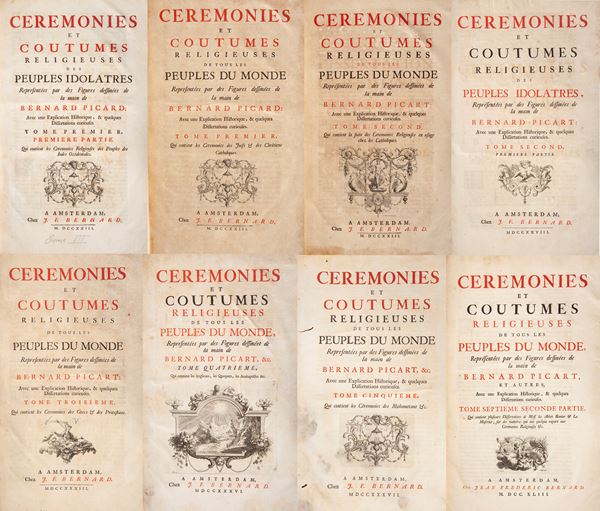 CEREMONIES
ET
COUTUMES
RELIGIEUSES
DES
PEUPLES IDOLATRES
Representées par des Figures dessinées de
la main de
BERNARD PICARD:
Avec une Explication Historique, & quelques
Dissertations curieuses.
TOME PREMIER,
PREMIERE PARTIE
Qui contient les Ceremonies Religieuses des Peuples des
Indes Occidentales.
A AMSTERDAM,
Chez J. F. BERNARD.
M. DCCXXIII.
Tome III
CEREMONIES
ET
COUTUMES
RELIGIEUSES
DE TOUS LES
PEUPLES DU MONDE
Representées par des Figures dessinées de
la main de
BERNARD PICARD:
Avec une Explication Historique, & quelques
Dissertations curieuses.
TOME PREMIER,
Qui contient les Ceremonies des Juifs & des Chrétiens
Catholiques.
A AMSTERDAM,
Chez J. F. BERNARD.
M. DCCXXIII.
CEREMONIES
ET
COUTUMES
RELIGIEUSES
DE TOUS LES
PEUPLES DU MONDE
Representées par des Figures dessinées de
la main de
BERNARD PICART:
Avec une Explication Historique, & quelques
Dissertations curieuses.
TOME SECOND,
Qui contient la suite des Ceremonies Religieuses en usage
chez les Catholiques.
A AMSTERDAM,
Chez J. F. BERNARD.
M. DCCXXIII.
CEREMONIES
ET
COUTUMES
RELIGIEUSES
DES
PEUPLES IDOLATRES,
Representées par des Figures dessinées de
la main de
BERNARD PICART:
Avec une Explication Historique, & quelques
Dissertations curieuses.
TOME SECOND,
PREMIERE PARTIE.
A AMSTERDAM,
Chez J. F. BERNARD.
MDCCXXVIII.
CEREMONIES
ET
COUTUMES
RELIGIEUSES
DE TOUS LES
PEUPLES DU MONDE
Representées par des Figures dessinées de
la main de
BERNARD PICART:
Avec une Explication Historique, & quelques
Dissertations curieuses.
TOME TROISIEME,
Qui contient les Ceremonies des Grecs & des Protestans.
A AMSTERDAM,
Chez J. F. BERNARD.
MDCCXXXIII.
CEREMONIES
ET
COUTUMES
RELIGIEUSES
DE TOUS LES
PEUPLES DU MONDE,
Representées par des Figures dessinées de la main de
BERNARD PICART, &c.
TOME QUATRIEME,
Qui contient les Anglicans, les Quaquers, les Anabaptistes &c.
A AMSTERDAM,
Chez J. F. BERNARD.
MDCCXXXVI.
CEREMONIES
ET
COUTUMES
RELIGIEUSES
DE TOUS LES
PEUPLES DU MONDE
Representées par des Figures dessinées de
la main de
BERNARD PICART, &c.
Avec une Explication Historique, & quelques
Dissertations curieuses.
TOME CINQUIEME,
Qui contient les Ceremonies des Mahometans &c.
A AMSTERDAM,
Chez J. F. BERNARD.
MDCCXXXVII.
CEREMONIES
ET
COUTUMES
RELIGIEUSES
DE TOUS LES
PEUPLES DU MONDE,
Representées par des Figures dessinées de
la main de
BERNARD PICART,
ET AUTRES,
Avec une Explication Historique, & quelques
Dissertations curieuses.
TOME SEPTIEME SECONDE PARTIE.
Qui contient plusieurs Dissertations de Mess. les Abbés Banier & Le
Mascrier, sur des matieres qui ont quelque raport aux
Ceremonies Religieuses &c.
A AMSTERDAM,
Chez JEAN FREDERIC BERNARD.
M. DCC. XLIII.